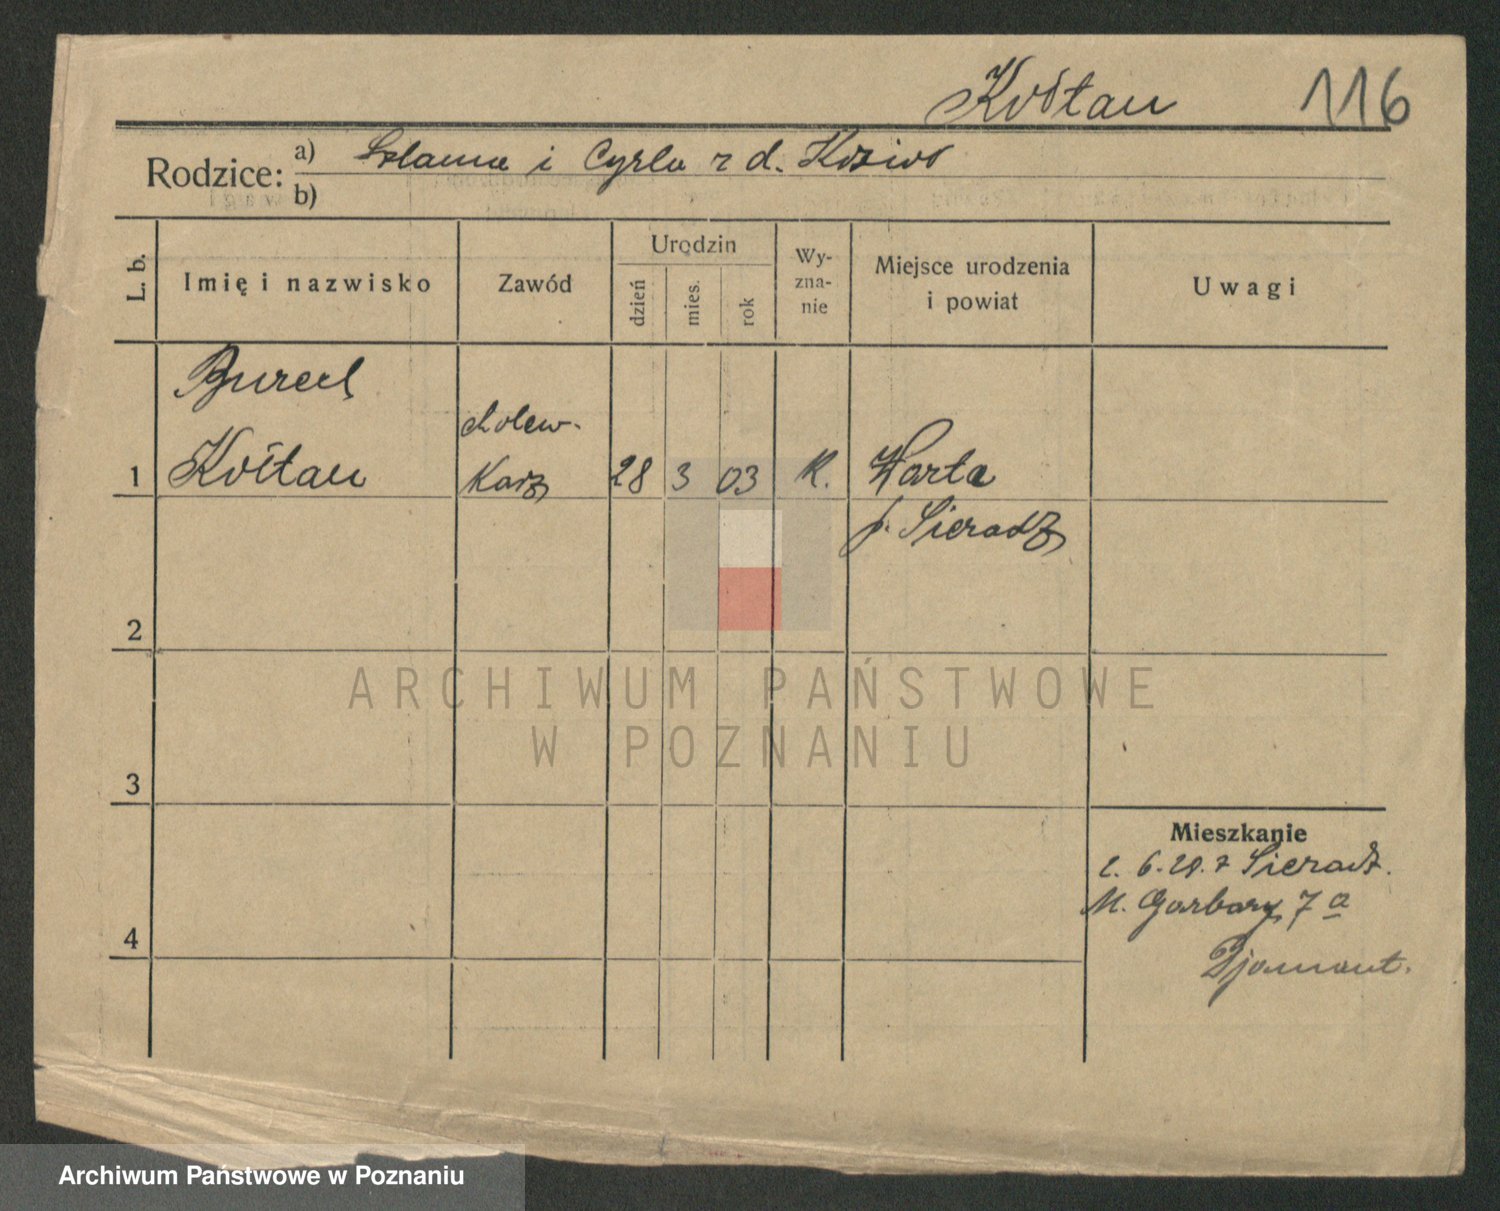 Kołtan 116
Rodzice: a) Szlama i Cyrla z d. Koziwo
b)
L. b.
Imię i nazwisko
Zawód
Urodzin
dzień
mies.
rok
Wy-
zna-
nie
Miejsce urodzenia
i powiat
Uwagi
Burech
Kołtan
cholew-
karz
1 28 3 03 M. Warta
p. Sieradz
2
3
4
Mieszkanie
6.28. z Sieradz.
M. Garbary 7a
Djamant.
ARCHIWUM PAŃSTWOWE
W POZNANIU
Archiwum Państwowe w Poznaniu